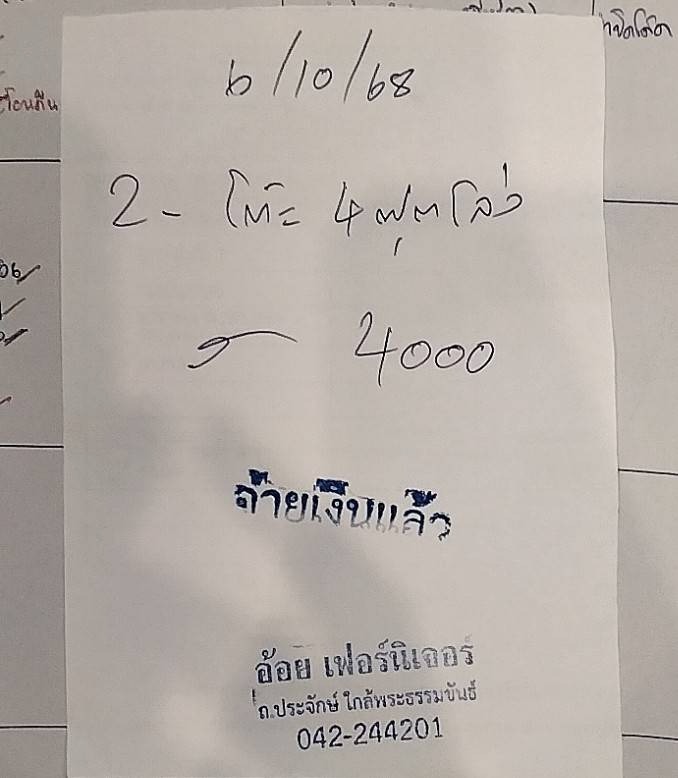 6/10/68
2- โต๊ะ 4 ฟุตโล่ง
4000
จ่ายเงินแล้ว
อ้อย เฟอร์นิเจอร์
ถ.ประจักษ์ ใกล้พระธรรมขันธ์
042-244201